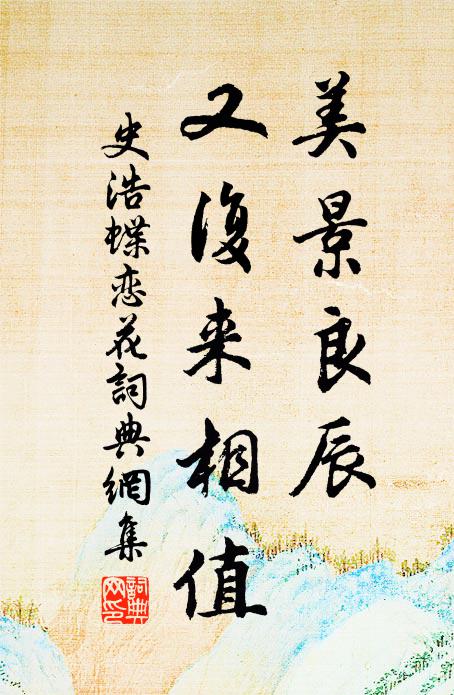 美景良辰
又復来相值
史浩蝶恋花詞典網集
詞典网印